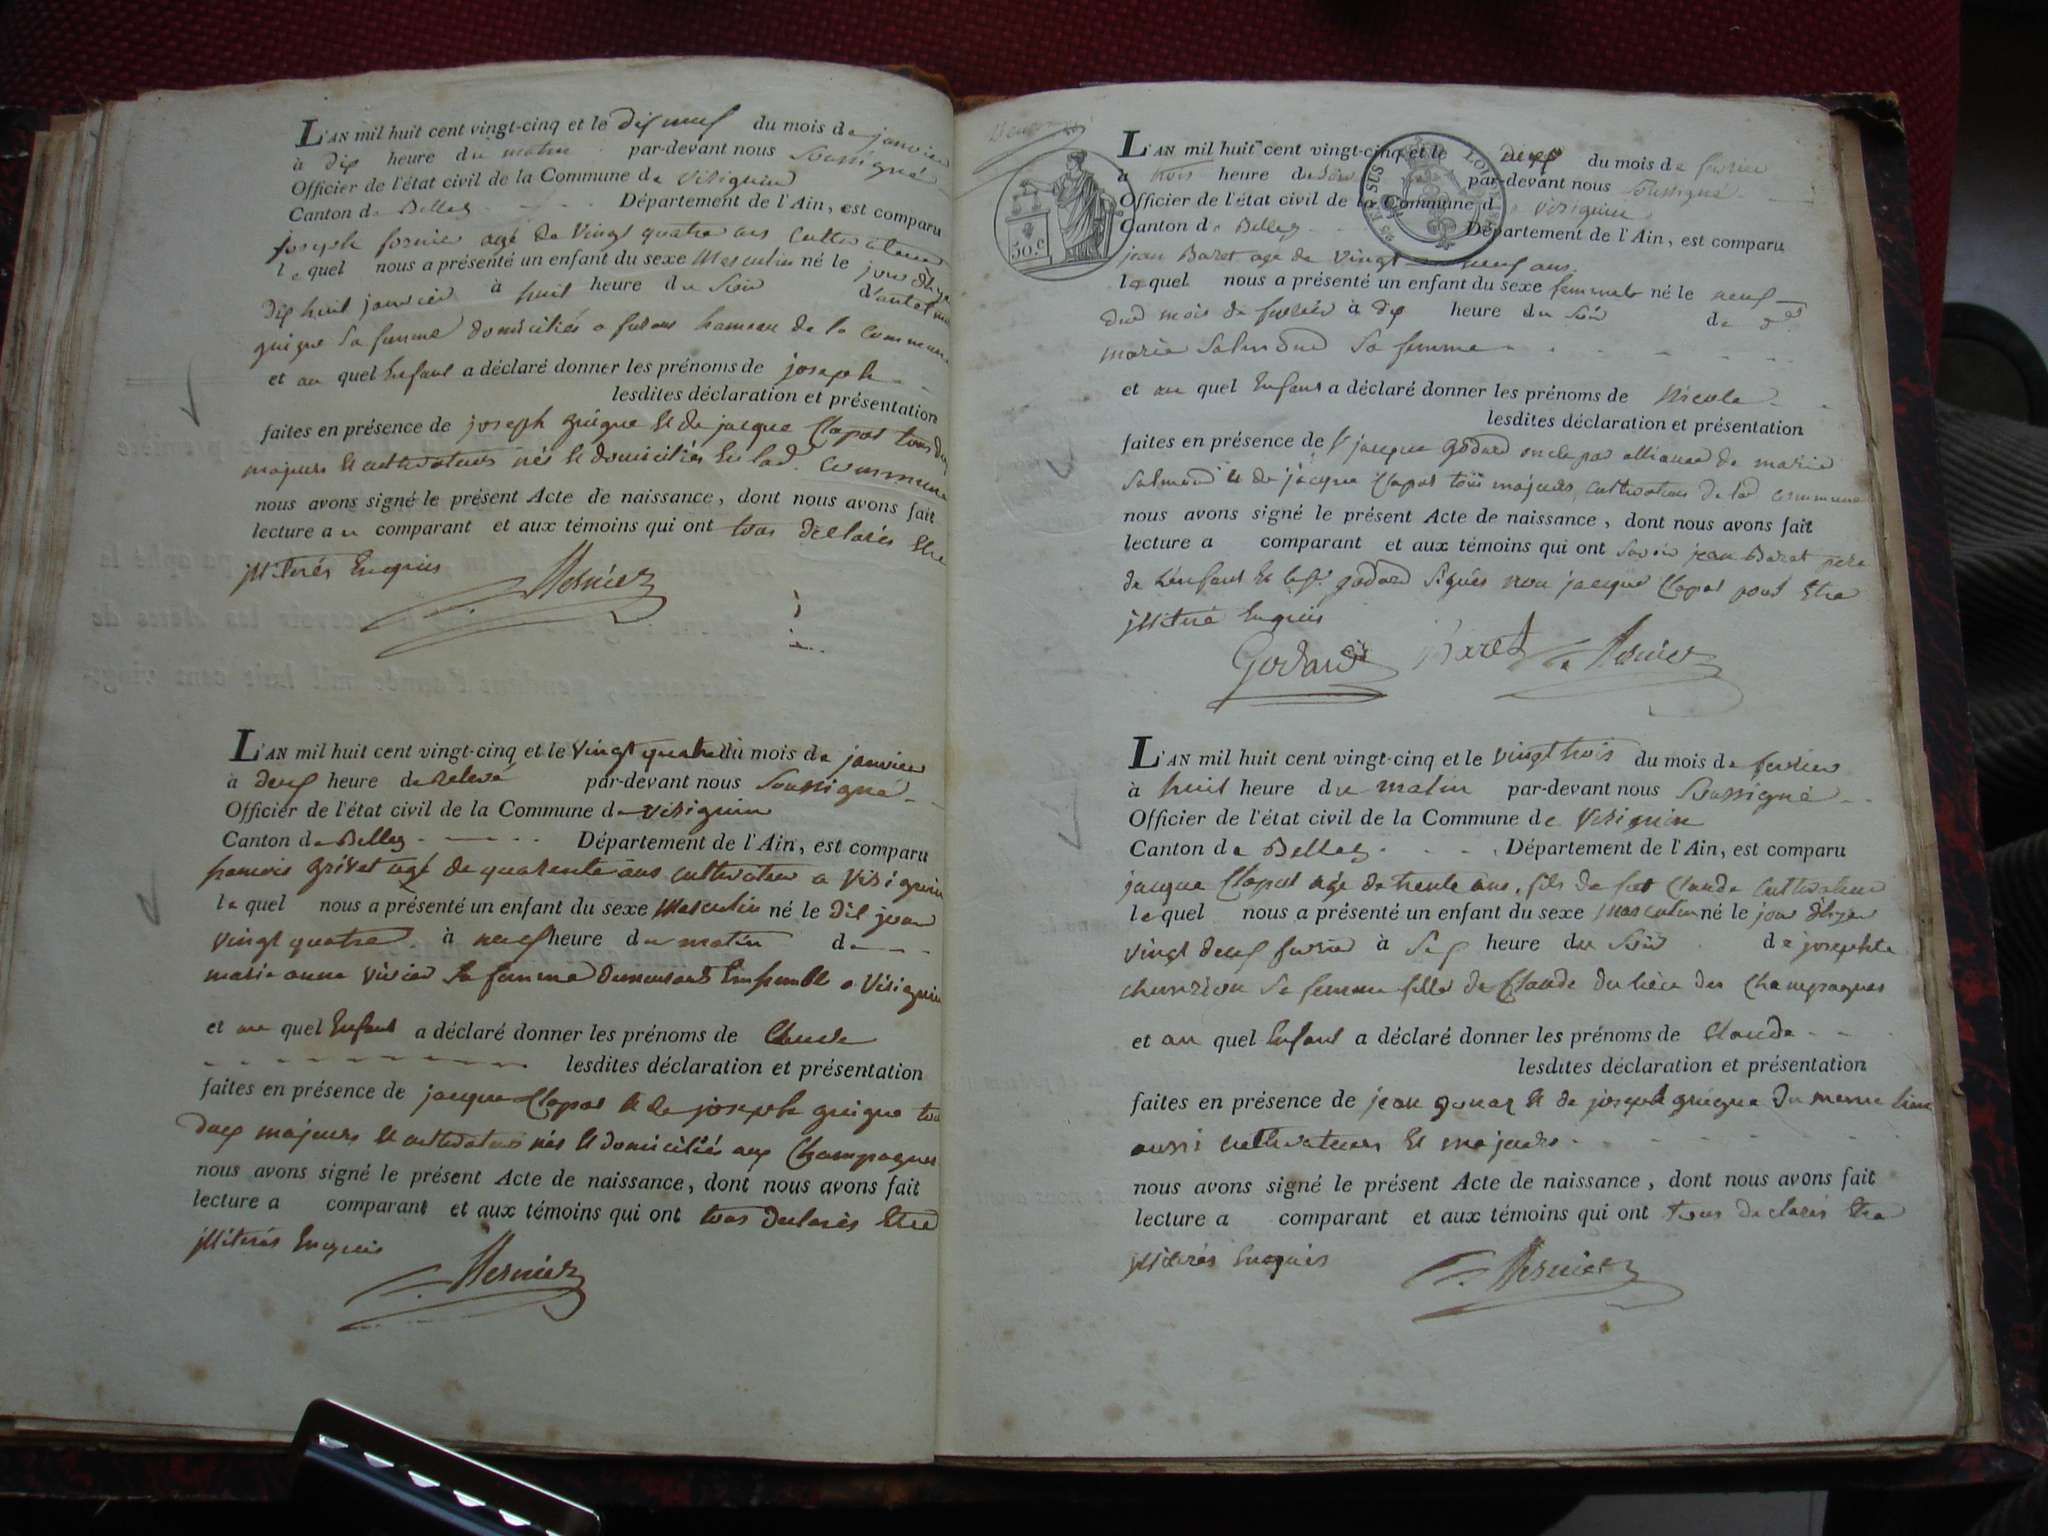 L'AN mil huit cent vingt-cinq et le dix neuf du mois de janvier
à dix heure du matin par-devant nous Soussigné
Officier de l'état civil de la Commune de Virignin
Canton de Belley Département de l'Ain, est comparu
joseph fornier agé de vingt quatre ans cultivateur
lequel nous a présenté un enfant du sexe Masculin né le jour d'hyer
dix huit janvier à huit heure du Soir
guigue Sa femme domiciliés a hameau de la commune
et au quel Enfant a déclaré donner les prénoms de joseph
lesdites déclaration et présentation
faites en présence de joseph guigue et de jacque Clapot tous deux
majeurs et cultivateurs nés et domiciliés en lad. commune
nous avons signé le présent Acte de naissance, dont nous avons fait
lecture au comparant et aux témoins qui ont tous déclarés Etre
illiterés Enquis
L'AN mil huit cent vingt-cinq et le vingt quatre du mois de janvier
à deux heure de Relevé par-devant nous Soussigné
Officier de l'état civil de la Commune de Virignin
Canton de Belley Département de l'Ain, est comparu
francois Grivet agé de quarente ans cultivateur a Virignin
lequel nous a présenté un enfant du sexe Masculin né le dit jour
vingt quatre à neuf heure du matin de
marie anne vivier Sa femme demeurant Ensemble a Virignin
et au quel Enfant a déclaré donner les prénoms de Claude
lesdites déclaration et présentation
faites en présence de jacque Clapot et de joseph guigue tous
deux majeurs et cultivateurs nés et domiciliés aux Champagnes
nous avons signé le présent Acte de naissance, dont nous avons fait
lecture a comparant et aux témoins qui ont tous declarés Etre
illiterés Enquis
50.c
L'AN mil huit cent vingt-cinq et le du mois de fevrier
à trois heure du Soir par-devant nous Soussigné
Officier de l'état civil de la Commune d Virignin
Canton de Belley Département de l'Ain, est comparu
jean Baret age de vingt neuf ans
lequel nous a présenté un enfant du sexe né le neuf
dud mois de fevrier à dix heure du Soir de
marie Salmond Sa femme
et au quel Enfant a déclaré donner les prénoms de Nicole
lesdites déclaration et présentation
faites en présence de Sr jacque Godard oncle par alliance de marie
Salmond et de jacque Clapot tous majeurs, cultivateurs de lad commune
nous avons signé le présent Acte de naissance, dont nous avons fait
lecture a comparant et aux témoins qui ont Savoir jean Baret pere
de L'enfant et le Sr. godard Signés non jacque Clapot pour Etre
illiteré Enquis
Godard Baret
L'AN mil huit cent vingt-cinq et le vingt trois du mois de fevrier
à huit heure du matin par-devant nous Soussigné
Officier de l'état civil de la Commune de Virignin
Canton de Belley Département de l'Ain, est comparu
jacque Clapot agé de trente ans, fils de feu Claude Cultivateur
lequel nous a présenté un enfant du sexe masculin né le jour d'hyer
vingt deux fevrier à Sep heure du Soir de josephte
Sa femme fille de Claude du lieu des Champagnes
et au quel Enfant a déclaré donner les prénoms de Claude
lesdites déclaration et présentation
faites en présence de jean et de joseph guigue du meme lieu
aussi cultivateurs et majeurs
nous avons signé le présent Acte de naissance, dont nous avons fait
lecture a comparant et aux témoins qui ont tous declarés Etre
illiterés Enquis